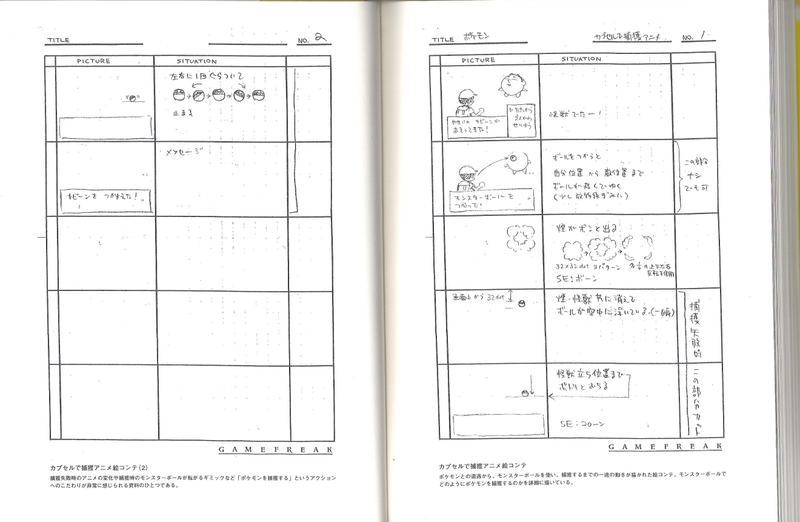 TITLE ポケモン カプセルで捕獲アニメ NO. 1
PICTURE SITUATION
やせいの ピピーンが
おそってきた!
怪獣でたー!
ボールをつかうと
自分位置から敵位置まで
ボールが飛んでいく
(少し放物線ぎみに)
モンスターボールを
つかった!
この部分
ナシ
でも可
煙がボンと出る
32×32dot 3パターン
SE:ボーン
画面上から32dot
煙・怪獣 共に消えて
ボールが空中に浮いている(一瞬)
捕獲失敗時
この部分カット
怪獣立ち位置まで
ポトリとおちる
SE:コローン
GAMEFREAK
カプセルで捕獲アニメ絵コンテ
ポケモンとの遭遇から、モンスターボールを使い、捕獲するまでの一連の動きが描かれた絵コンテ。モンスターボールで
どのようにポケモンを捕獲するのかを詳細に描いている。
TITLE NO. 2
PICTURE SITUATION
左右に1回ぐらついて
止まる
メッセージ
ピピーンを つかまえた!
GAMEFREAK
カプセルで捕獲アニメ絵コンテ(2)
捕獲失敗時のアニメの変化や捕獲時のモンスターボールが転がるギミックなど「ポケモンを捕獲する」というアクション
へのこだわりが非常に感じられる資料のひとつである。